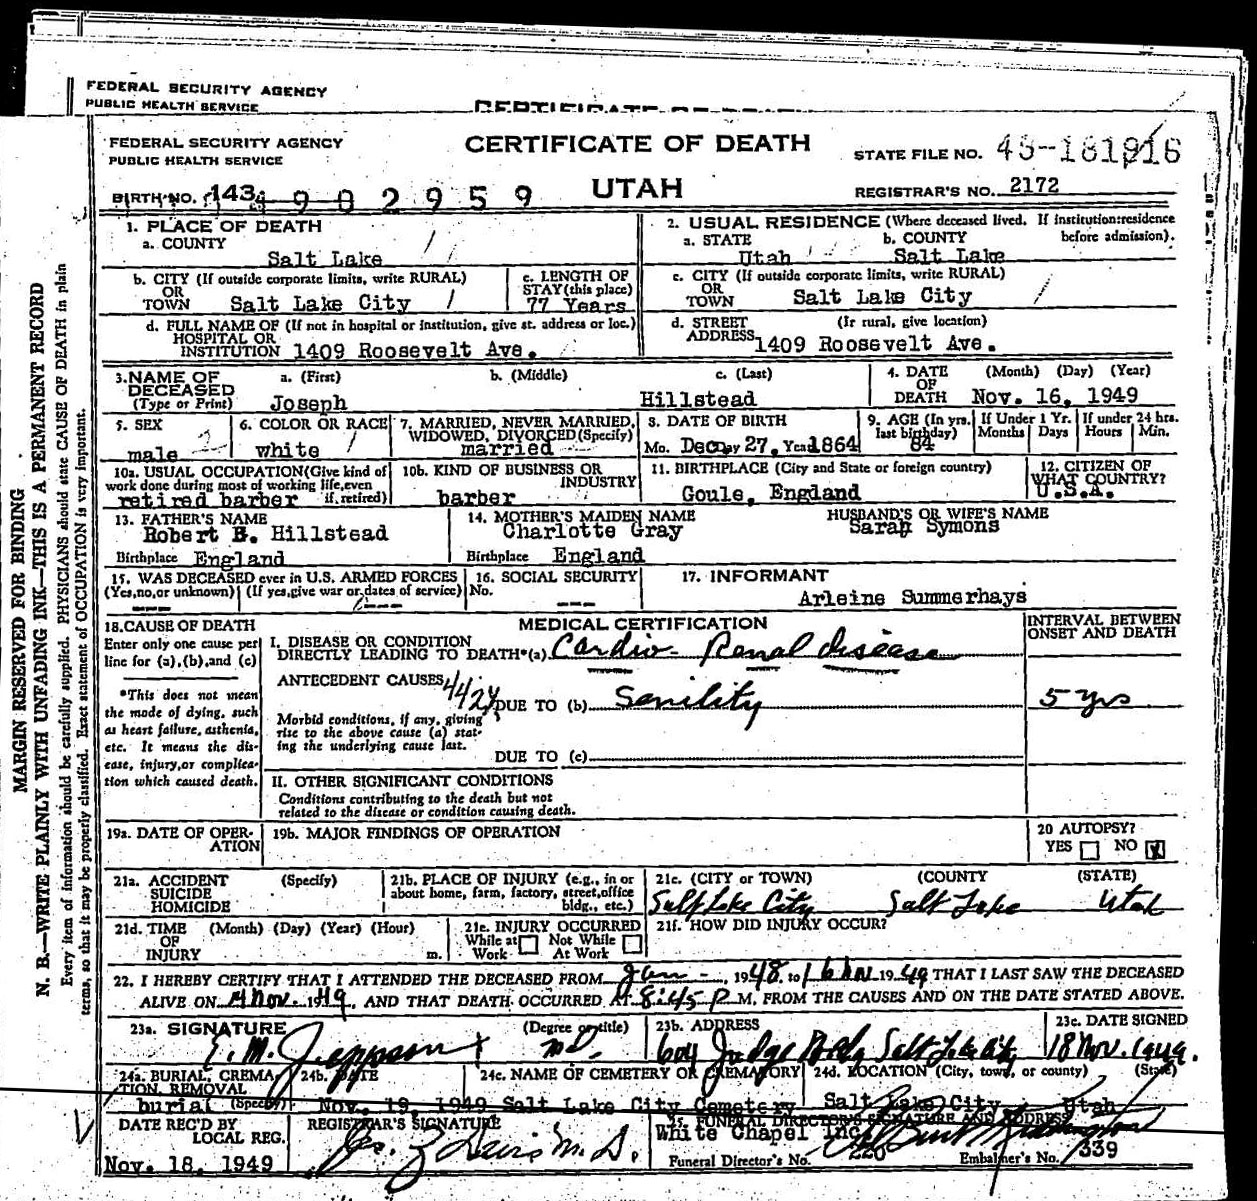 FEDERAL SECURITY AGENCY
PUBLIC HEALTH SERVICE
FEDERAL SECURITY AGENCY
PUBLIC HEALTH SERVICE
CERTIFICATE OF DEATH
UTAH
STATE FILE NO.
REGISTRAR'S NO. 2172
BIRTH NO. 143 902959
1. PLACE OF DEATH
a. COUNTY
Salt Lake
2. USUAL RESIDENCE (Where deceased lived. If institution:residence before admission).
a. STATE b. COUNTY
Utah Salt Lake
b. CITY (If outside corporate limits, write RURAL)
OR
TOWN Salt Lake City
c. LENGTH OF
STAY (this place)
77 Years
c. CITY (If outside corporate limits, write RURAL)
OR
TOWN Salt Lake City
d. FULL NAME OF (If not in hospital or institution, give st. address or loc.)
HOSPITAL OR
INSTITUTION 1409 Roosevelt Ave.
d. STREET (If rural, give location)
ADDRESS 1409 Roosevelt Ave.
3. NAME OF a. (First) b. (Middle) c. (Last)
DECEASED
(Type or Print) Joseph Hillstead
4. DATE (Month) (Day) (Year)
OF
DEATH Nov. 16, 1949
5. SEX
male
6. COLOR OR RACE
white
7. MARRIED, NEVER MARRIED,
WIDOWED, DIVORCED (Specify)
married
8. DATE OF BIRTH
Mo. Dec Day 27, Year 1864
9. AGE (In yrs. last birthday)
84
If Under 1 Yr. Months Days
If under 24 hrs. Hours Min.
10a. USUAL OCCUPATION (Give kind of
work done during most of working life, even
if retired)
retired barber
10b. KIND OF BUSINESS OR
INDUSTRY
barber
11. BIRTHPLACE (City and State or foreign country)
Goule, England
12. CITIZEN OF
WHAT COUNTRY?
U.S.A.
13. FATHER'S NAME
Robert B. Hillstead
Birthplace England
14. MOTHER'S MAIDEN NAME
Charlotte Gray
Birthplace England
HUSBAND'S OR WIFE'S NAME
Sarah Symons
15. WAS DECEASED ever in U.S. ARMED FORCES
(Yes, no, or unknown) (If yes, give war or dates of service)
--- ---
16. SOCIAL SECURITY
No. ---
17. INFORMANT
Arleine Summerhays
18. CAUSE OF DEATH
Enter only one cause per
line for (a), (b), and (c)
*This does not mean
the mode of dying, such
as heart failure, asthenia,
etc. It means the dis-
ease, injury, or complica-
tion which caused death.
MEDICAL CERTIFICATION
INTERVAL BETWEEN
ONSET AND DEATH
I. DISEASE OR CONDITION
DIRECTLY LEADING TO DEATH*(a) Cardio-Renal disease
ANTECEDENT CAUSES
DUE TO (b) Senility 5 yrs
Morbid conditions, if any, giving
rise to the above cause (a) stat-
ing the underlying cause last.
DUE TO (c)
II. OTHER SIGNIFICANT CONDITIONS
Conditions contributing to the death but not
related to the disease or condition causing death.
19a. DATE OF OPER-
ATION
19b. MAJOR FINDINGS OF OPERATION
20 AUTOPSY?
YES NO
21a. ACCIDENT (Specify)
SUICIDE
HOMICIDE
21b. PLACE OF INJURY (e.g., in or
about home, farm, factory, street, office
bldg., etc.)
21c. (CITY or TOWN) (COUNTY) (STATE)
Salt Lake City Salt Lake Utah
21d. TIME (Month) (Day) (Year) (Hour)
OF
INJURY m.
21e. INJURY OCCURRED
While at Not While
Work At Work
21f. HOW DID INJURY OCCUR?
22. I HEREBY CERTIFY THAT I ATTENDED THE DECEASED FROM Jan -, 1948, to 16 Nov. 1949 THAT I LAST SAW THE DECEASED
ALIVE ON Nov. 1949, AND THAT DEATH OCCURRED AT 8:45 P M, FROM THE CAUSES AND ON THE DATE STATED ABOVE.
23a. SIGNATURE (Degree or title)
E. M. Jeppson M.D.
23b. ADDRESS
Judge Bldg Salt Lake City
23c. DATE SIGNED
18 Nov. 1949.
24a. BURIAL, CREMA-
TION, REMOVAL
burial (Specify)
24b. DATE
Nov. 19, 1949
24c. NAME OF CEMETERY OR CREMATORY
Salt Lake City Cemetery
24d. LOCATION (City, town, or county) (State)
Salt Lake City, Utah
DATE REC'D BY
LOCAL REG.
Nov. 18, 1949
REGISTRAR'S SIGNATURE
25. FUNERAL DIRECTOR'S SIGNATURE AND ADDRESS
White Chapel Inc
Funeral Director's No. 220 Embalmer's No. 339
MARGIN RESERVED FOR BINDING
N. B.—WRITE PLAINLY WITH UNFADING INK—THIS IS A PERMANENT RECORD
Every item of information should be carefully supplied. PHYSICIANS should state CAUSE OF DEATH in plain
terms, so that it may be properly classified. Exact statement of OCCUPATION is very important.